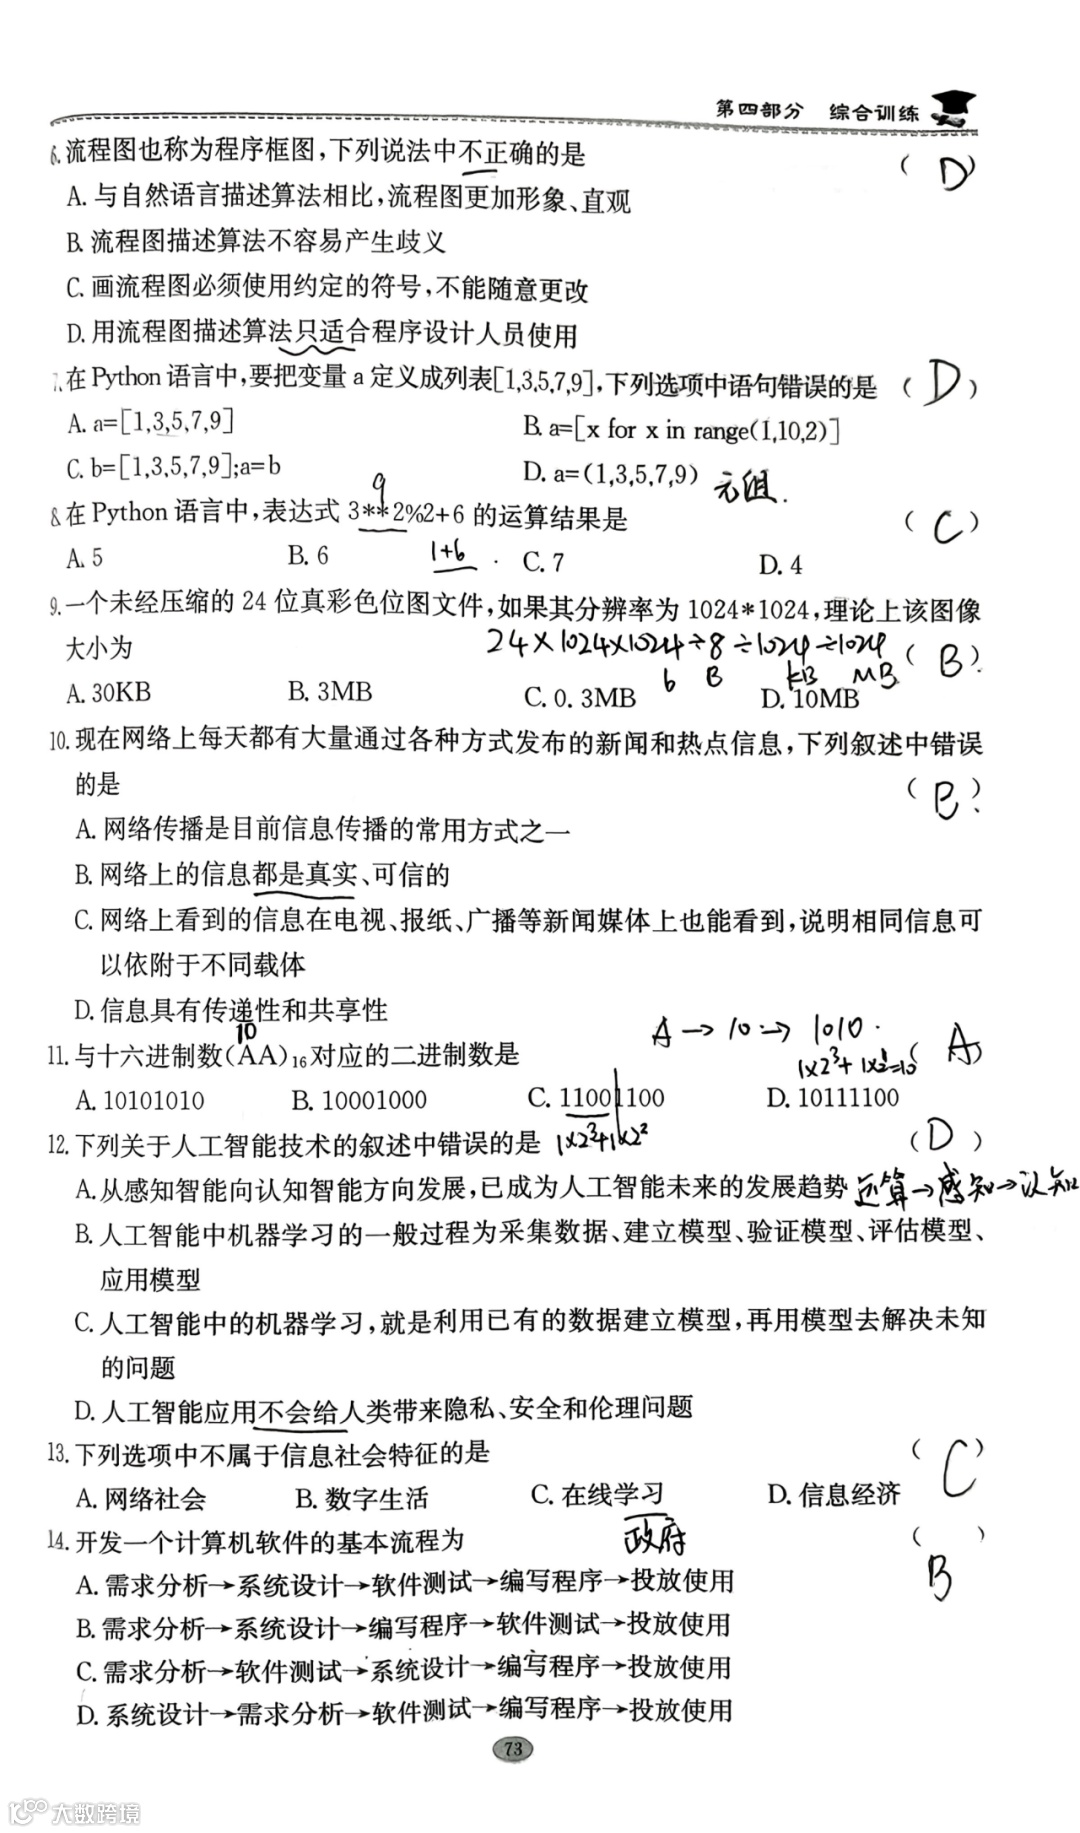 第四部分 综合训练
6.流程图也称为程序框图,下列说法中不正确的是 ( D )
A.与自然语言描述算法相比,流程图更加形象、直观
B.流程图描述算法不容易产生歧义
C.画流程图必须使用约定的符号,不能随意更改
D.用流程图描述算法只适合程序设计人员使用
7.在Python语言中,要把变量a定义成列表[1,3,5,7,9],下列选项中语句错误的是 ( D )
A. a=[1,3,5,7,9] B. a=[x for x in range(1,10,2)]
C. b=[1,3,5,7,9];a=b D. a=(1,3,5,7,9) 元组.
9
8.在Python语言中,表达式3**2%2+6的运算结果是 ( C )
A. 5 B. 6 1+6 C. 7 D. 4
9.一个未经压缩的24位真彩色位图文件,如果其分辨率为1024*1024,理论上该图像
大小为 24×1024×1024÷8÷1024÷1024 ( B )
b B KB MB
A. 30KB B. 3MB C. 0.3MB D. 10MB
10.现在网络上每天都有大量通过各种方式发布的新闻和热点信息,下列叙述中错误
的是 ( B )
A.网络传播是目前信息传播的常用方式之一
B.网络上的信息都是真实、可信的
C.网络上看到的信息在电视、报纸、广播等新闻媒体上也能看到,说明相同信息可
以依附于不同载体
D.信息具有传递性和共享性
10 A→10→1010.
11.与十六进制数(AA)16对应的二进制数是 1×2³+1×2¹=10 ( A )
A. 10101010 B. 10001000 C. 11001100 D. 10111100
12.下列关于人工智能技术的叙述中错误的是 1×2³+1×2² ( D )
A.从感知智能向认知智能方向发展,已成为人工智能未来的发展趋势 运算→感知→认知
B.人工智能中机器学习的一般过程为采集数据、建立模型、验证模型、评估模型、
应用模型
C.人工智能中的机器学习,就是利用已有的数据建立模型,再用模型去解决未知
的问题
D.人工智能应用不会给人类带来隐私、安全和伦理问题
13.下列选项中不属于信息社会特征的是 ( C )
A.网络社会 B.数字生活 C.在线学习 D.信息经济
政府
14.开发一个计算机软件的基本流程为 ( )
B
A.需求分析→系统设计→软件测试→编写程序→投放使用
B.需求分析→系统设计→编写程序→软件测试→投放使用
C.需求分析→软件测试→系统设计→编写程序→投放使用
D.系统设计→需求分析→软件测试→编写程序→投放使用
73
大数跨境